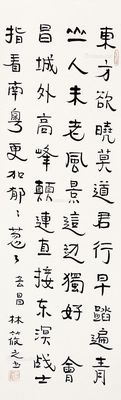 東方欲曉莫道君行早踏遍青
山人未老風景這边獨好 會
昌城外高峰顛連直接东溟战士
指看南粤更加郁〻葱〻 會昌 林筱之書